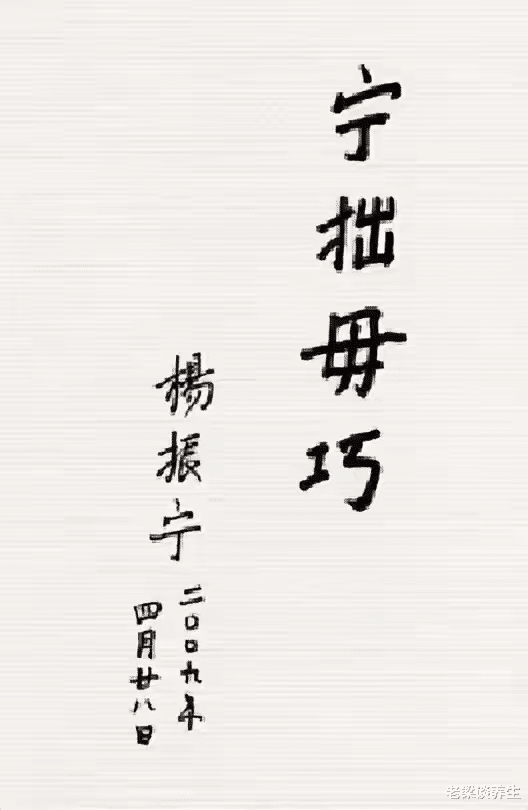 宁拙毋巧
楊振宁
二〇〇九年
四月廿八日
老梁谈养生